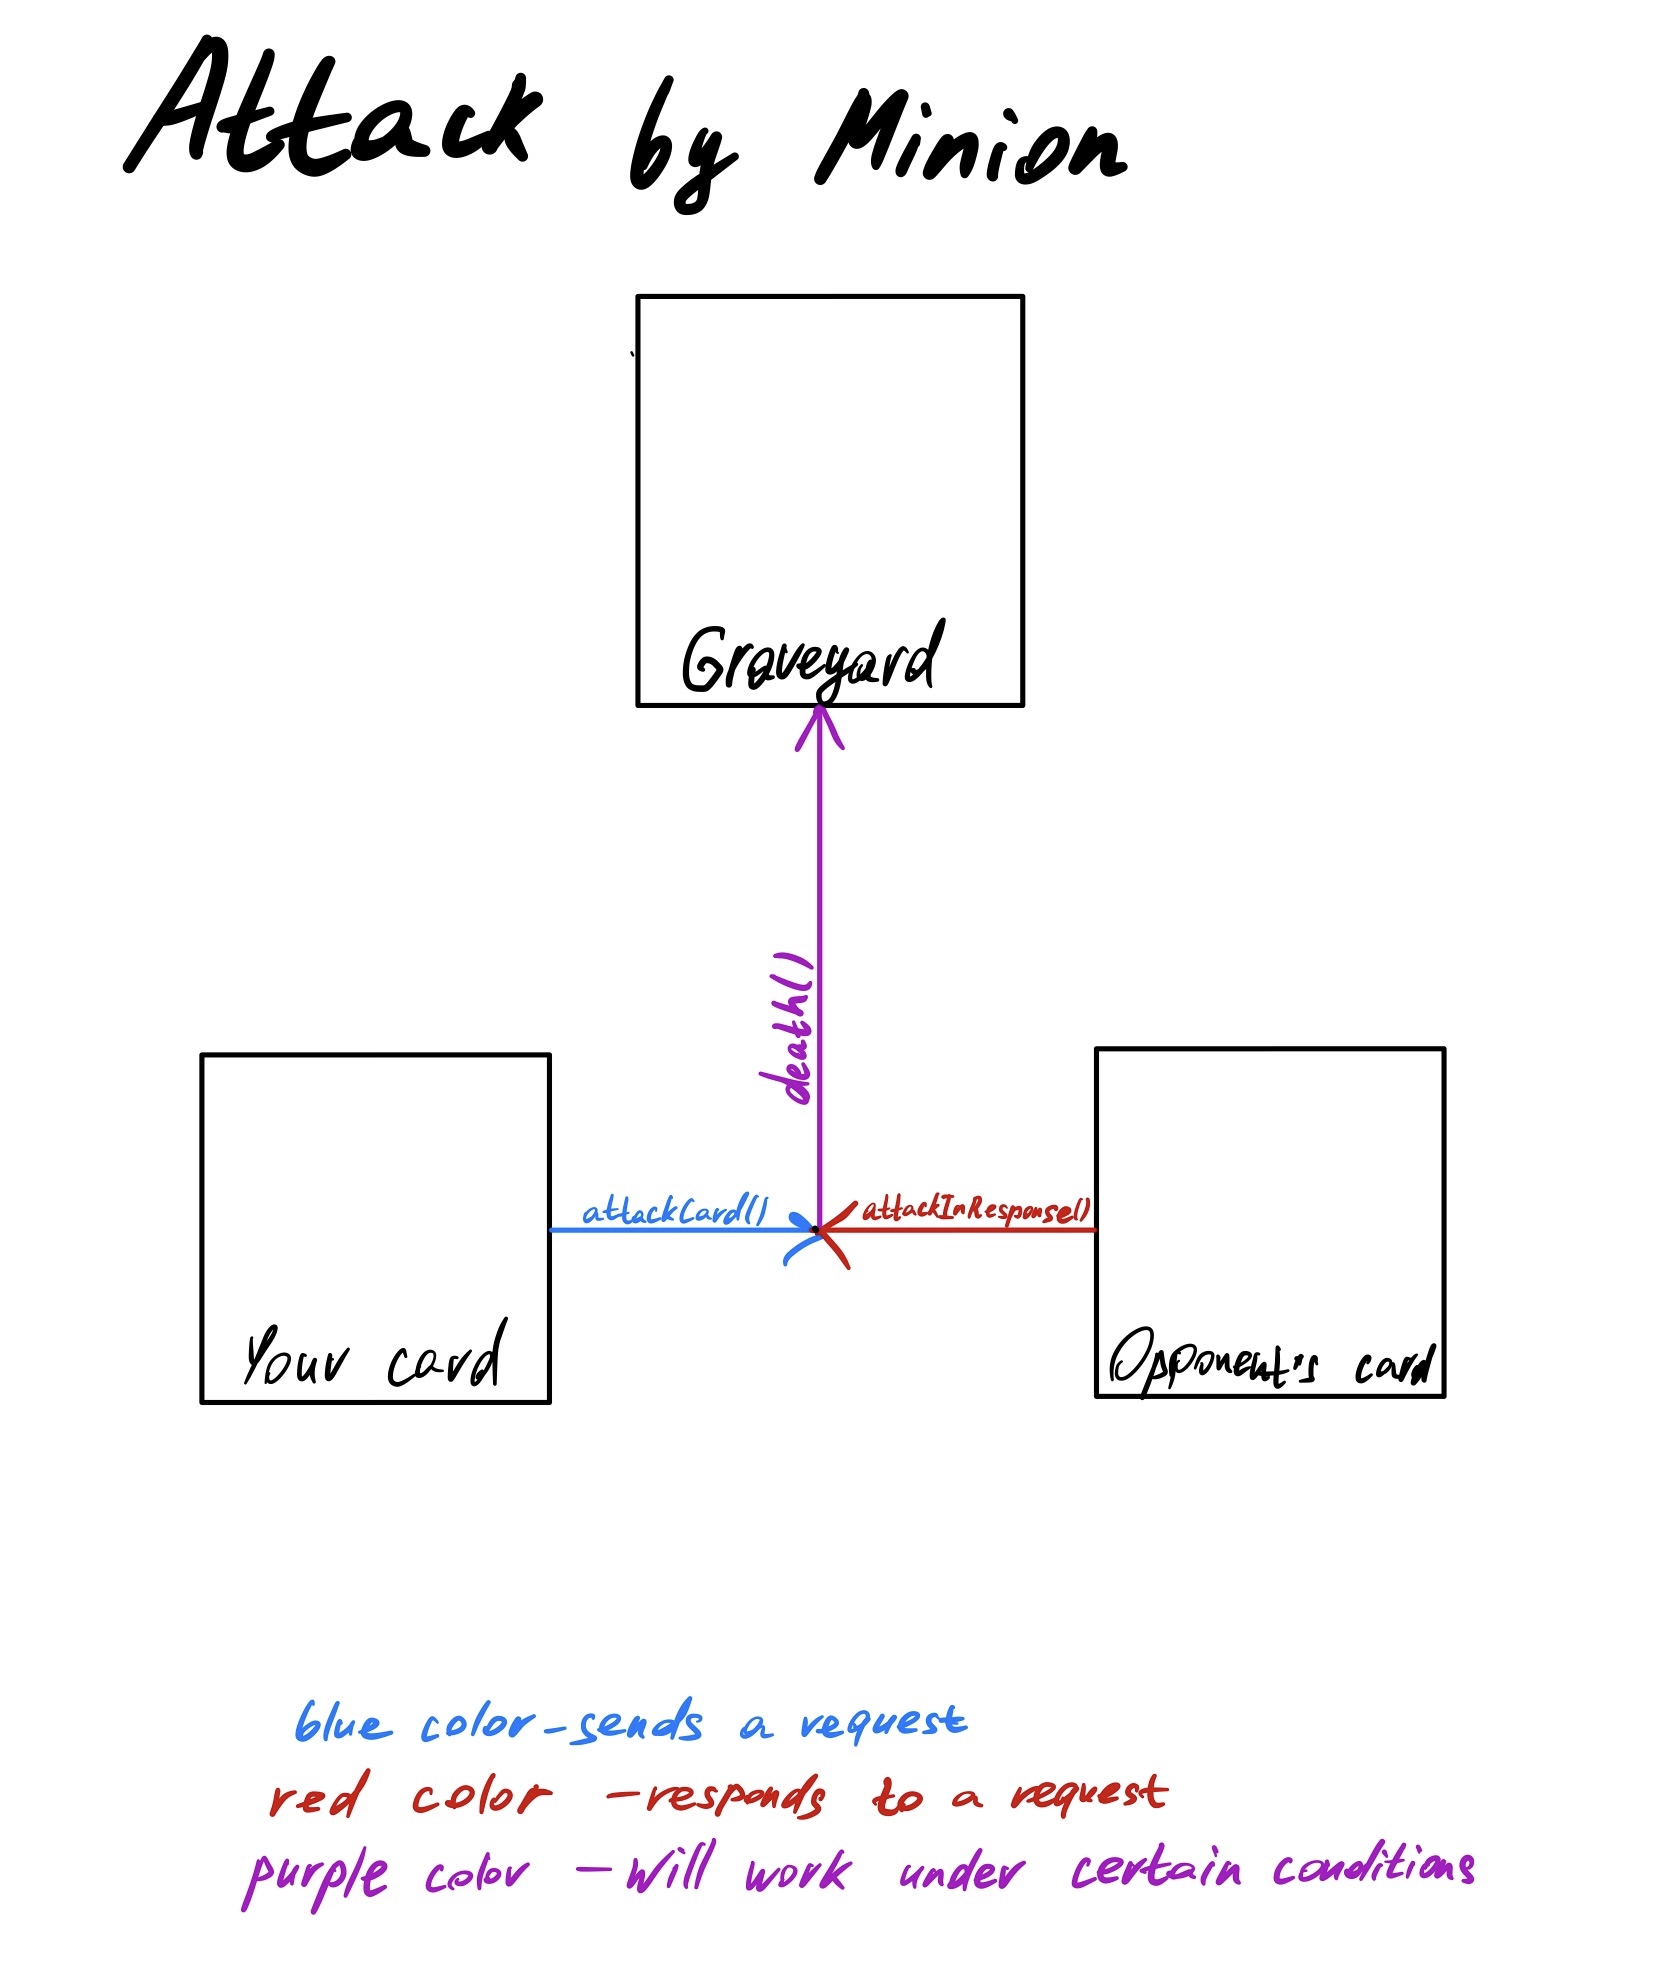 Attack by Minion
Graveyard
death()
attackCard()
attackInResponse()
Your card
Opponent's card
blue color - sends a request
red color - responds to a request
purple color - will work under certain conditions